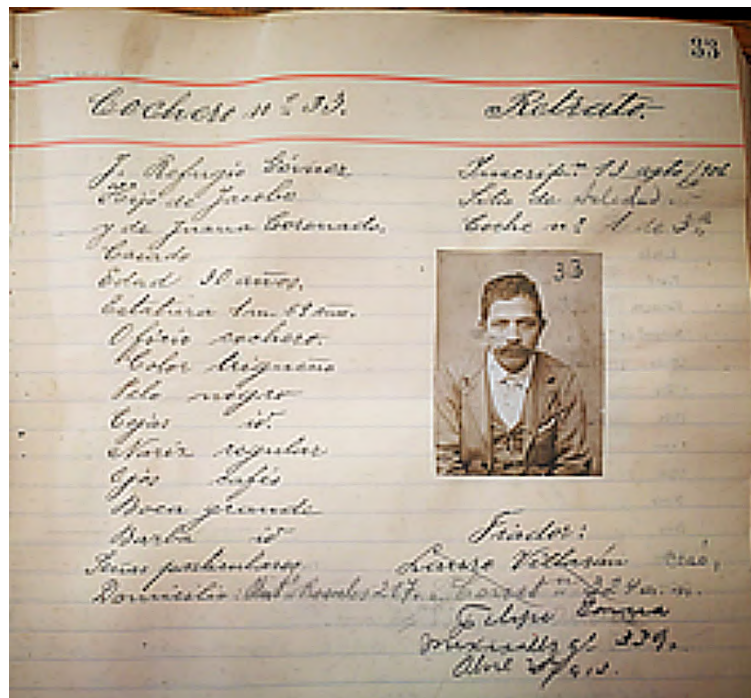 33
Cochero nº 33. Retrato.
J. Refugio Gómez
Hijo de Jacobo
y de Juana Coronado.
Casado
Edad 30 años.
Estatura 1 m.
Oficio cochero.
Color trigueño
Pelo negro
Cejas id.
Nariz regular
Ojos cafés
Boca grande
Barba id
Señas particulares
Domicilio:
Inscripn 13 agto
Sitio de Soledad
Coche nº 1 de 3ª
33
Fiador:
Villasán
Felipe
339.